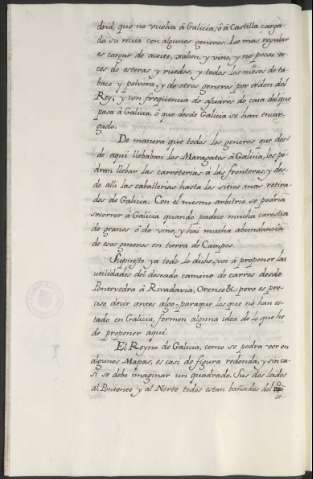 drid, que no vuelva á Galicia, ó á Castilla carga-
da su recua con algunos generos. Lo mas regular
es cargar de aceite, xabon, y vino, y no pocas ve-
ces de esteras y ruedos, y todas las de ta-
baco y polvora, y de otros generos por orden del
Rey; y con freqüencia de ajuares de casa del que
pasa á Galicia, ó que desde Galicia se han encar-
gado.
De manera que todos los generos que des-
de aqui llebaban los Maragatos á Galicia, los po-
dran llebar las carreterias á las fronteras, y des-
de alli las caballerias hasta los sitios mas retira-
dos de Galicia. Con el mesmo arbitrio se podria
socorrer á Galicia quando padece mucha carestia
de granos ó de vino, y hay mucha abundancia
de esos generos en tierra de Campos.
Supuesto ya todo lo dicho, voi á proponer las
utilidades del deseado camino de carros desde
Pontevedra á Rivadavia, Orense &c. pero es pre-
ciso decir antes algo, para que los que no han es-
tado en Galicia, formen alguna idea de lo que he
de proponer aqui.
El Reyno de Galicia, como se podra ver en
algunos Mapas, es casi de figura redonda, y sin ca-
si se debe imaginar un quadrado. Sus dos lados
al Poniente y al Norte, todos estan bañados del